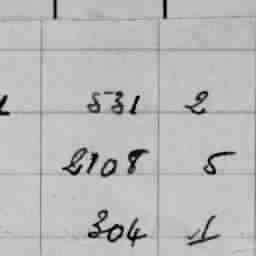 531 2
2108 5
304 1